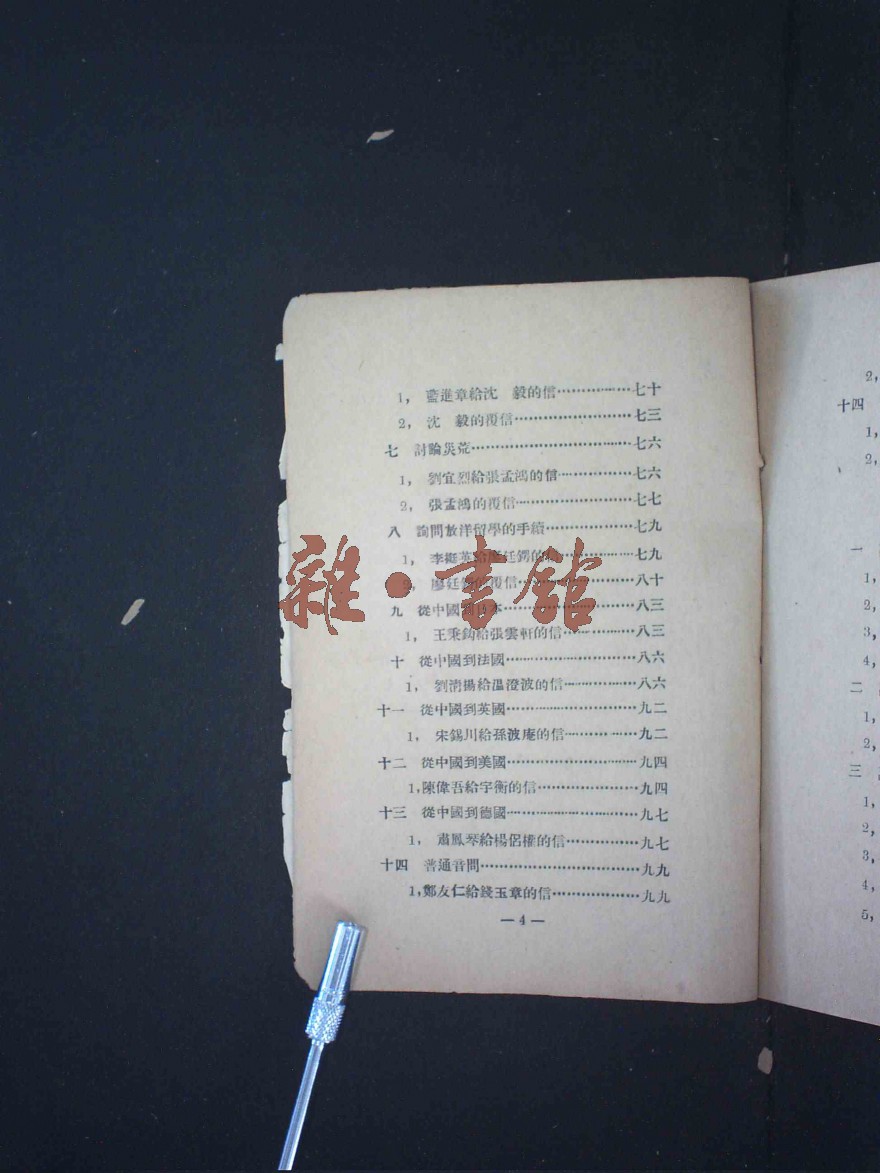 1, 藍進章給沈 毅的信……………七十
2, 沈 毅的覆信……………………七三
七 討論災荒…………………………七六
1, 劉宜烈給張孟鴻的信……………七六
2, 張孟鴻的覆信……………………七七
八 詢問放洋留學的手續……………七九
1, 李 英給廖廷鍔的 ……………七九
2, 廖廷 的覆信……………………八十
九 從中國到日本……………………八三
1, 王秉鈞給張雲軒的信……………八三
十 從中國到法國……………………八六
1, 劉清揚給溫澄波的信……………八六
十一 從中國到英國…………………九二
1, 宋錫川給孫波庵的信……………九二
十二 從中國到美國…………………九四
1,陳偉吾給宇衡的信………………九四
十三 從中國到德國…………………九七
1, 肅鳳琴給楊侶權的信……………九七
十四 普通音問………………………九九
1,鄭友仁給錢玉章的信……………九九
—4—
雜·書館
2,
十四
1,
2,
一
1,
2,
3,
4,
二
1,
2,
三
1,
2,
3,
4,
5,